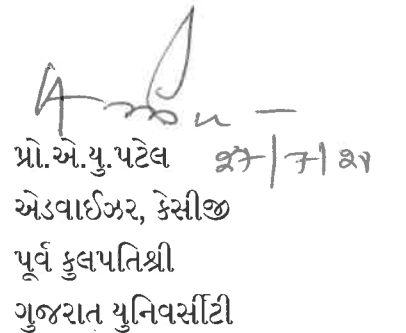 પ્રો.એ.યુ.પટેલ
એડવાઈઝર, કેસીજી
પૂર્વ કુલપતિશ્રી
ગુજરાત યુનિવર્સીટી